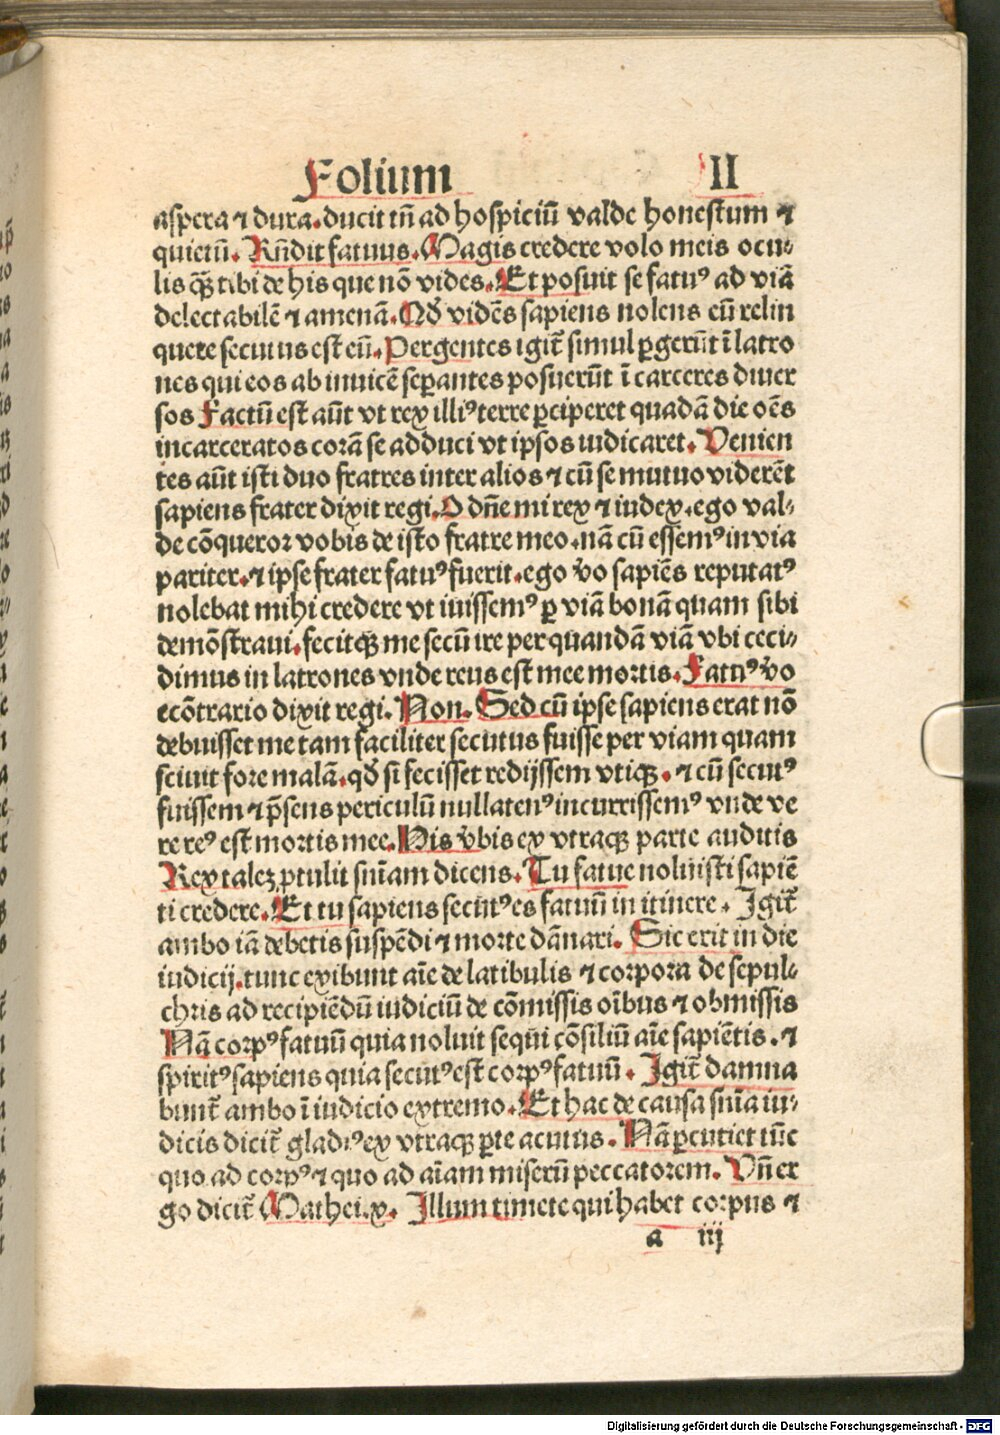 Folium II
aspera ⁊ dura. ducit tñ ad hospiciū valde honestum ⁊
quietū. Rñdit fatuus. Magis credere volo meis ocu-
lis q̃ꝫ tibi de his que nō vides. Et posuit se fatuꝰ ad viā
delectabilē ⁊ amenā. Qđ vidēs sapiens nolens eū relin
quere secutus est eū. Pergentes igit̃ simul ꝑgerūt ī latro
nes qui eos ab inuicē seꝑantes posuerūt ī carceres diuer
sos Factū est aūt vt rex illiꝰ terre ꝑciperet quadā die oēs
incarceratos corā se adduci vt ipsos iudicaret. Venien
tes aūt isti duo fratres inter alios ⁊ cū se mutuo viderēt
sapiens frater dixit regi. O dñe mi rex ⁊ iudex. ego val-
de cōqueror vobis de isto fratre meo. nā cū essemꝰ in via
pariter. ⁊ ipse frater fatuꝰ fuerit. ego v̄o sapiēs reputatꝰ
nolebat mihi credere vt iuissemꝰ ꝑ viā bonā quam sibi
demōstraui. fecitqꝫ me secū ire per quandā viā vbi ceci-
dimus in latrones vnde reus est mee mortis. Fatuꝰ v̄o
ecōtrario dixit regi. Non. Sed cū ipse sapiens erat nō
debuisset me tam faciliter secutus fuisse per viam quam
sciuit fore malā. qđ si fecisset redijssem vtiqꝫ. ⁊ cū secutꝰ
fuissem ⁊ p̄sens periculū nullatenꝰ incurrissemꝰ vnde ve
re reꝰ est mortis mee. His v̄bis ex vtraqꝫ parte auditis
Rex taleꝫ ꝓtulit sñiam dicens. Tu fatue noluisti sapiē
ti credere. Et tu sapiens secutꝰ es fatuū in itinere. Igit̃
ambo iā debetis suspēdi ⁊ morte dānari. Sic erit in die
iudicij. tunc exibunt aīe de latibulis ⁊ corpora de sepul-
chris ad recipiēdū iudiciū de cōmissis oībus ⁊ obmissis
Nā corpꝰ fatuū quia noluit sequi cōsiliū aīe sapiētis. ⁊
spiritꝰ sapiens quia secutꝰ est corpꝰ fatuū. Igit̃ damna
bunt̃ ambo ī iudicio extremo. Et hac de causa sñia iu-
dicis dicit̃ gladiꝰ ex vtraqꝫ ꝑte acutus. Nā ꝑcutiet tūc
quo ad corpꝰ ⁊ quo ad aīam miserū peccatorem. Vñ er
go dicit̃ Mathei. x. Illum timete qui habet corpus ⁊
a iij
Digitalisierung gefördert durch die Deutsche Forschungsgemeinschaft - DFG